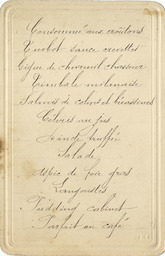 Consommé aux croûtons
Turbot sauce crevettes
Gigue de chevreuil chasseur
Timbale milanaise
Salmis de colons et bécassines
Cèpes au jus
Dinde truffée
Salade
Aspic de foie gras
Langoustes
Pudding cabinet
Parfait au café